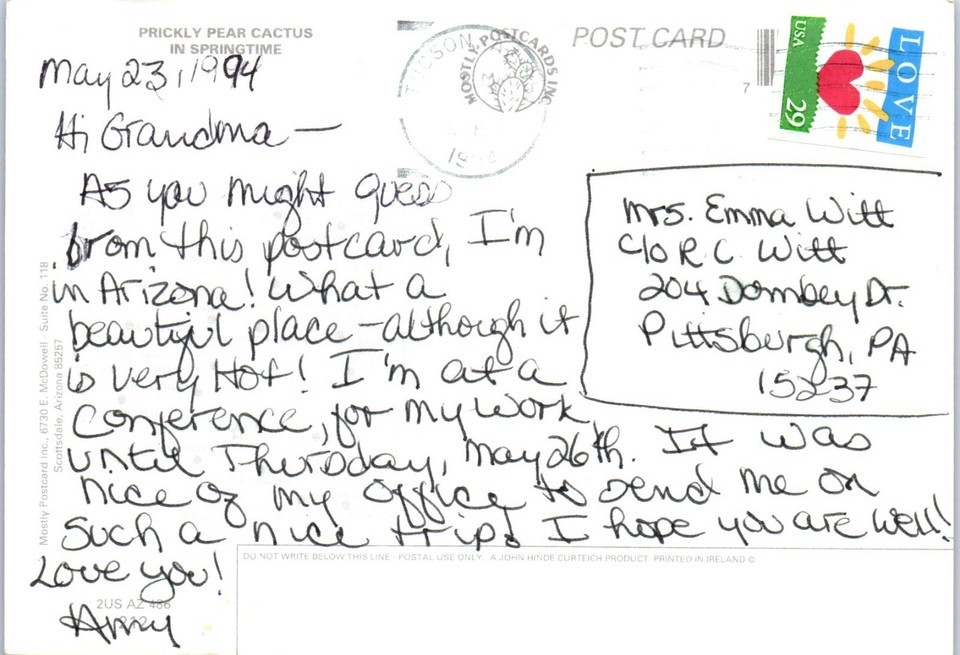 PRICKLY PEAR CACTUS
IN SPRINGTIME
May 23, 1994
Hi Grandma —
As you might guess
from this postcard, I'm
in Arizona! What a
beautiful place - although it
is very Hot! I'm at a
Conference, for my work
until Thursday, May 26th. It was
nice of my office to send me on
such a nice trip! I hope you are well!
Love you!
Amy
POST CARD
TUCSON, AZ
MOSTLY POSTCARDS INC
7
USA
29
LOVE
Mrs. Emma Witt
C/O R C Witt
204 Dombey Dr.
Pittsburgh, PA
15237
Mostly Postcard Inc., 6730 E. McDowell - Suite No. 118
Scottsdale, Arizona 85257
DO NOT WRITE BELOW THIS LINE - POSTAL USE ONLY. A JOHN HINDE CURTEICH PRODUCT. PRINTED IN IRELAND ©
2US AZ 486